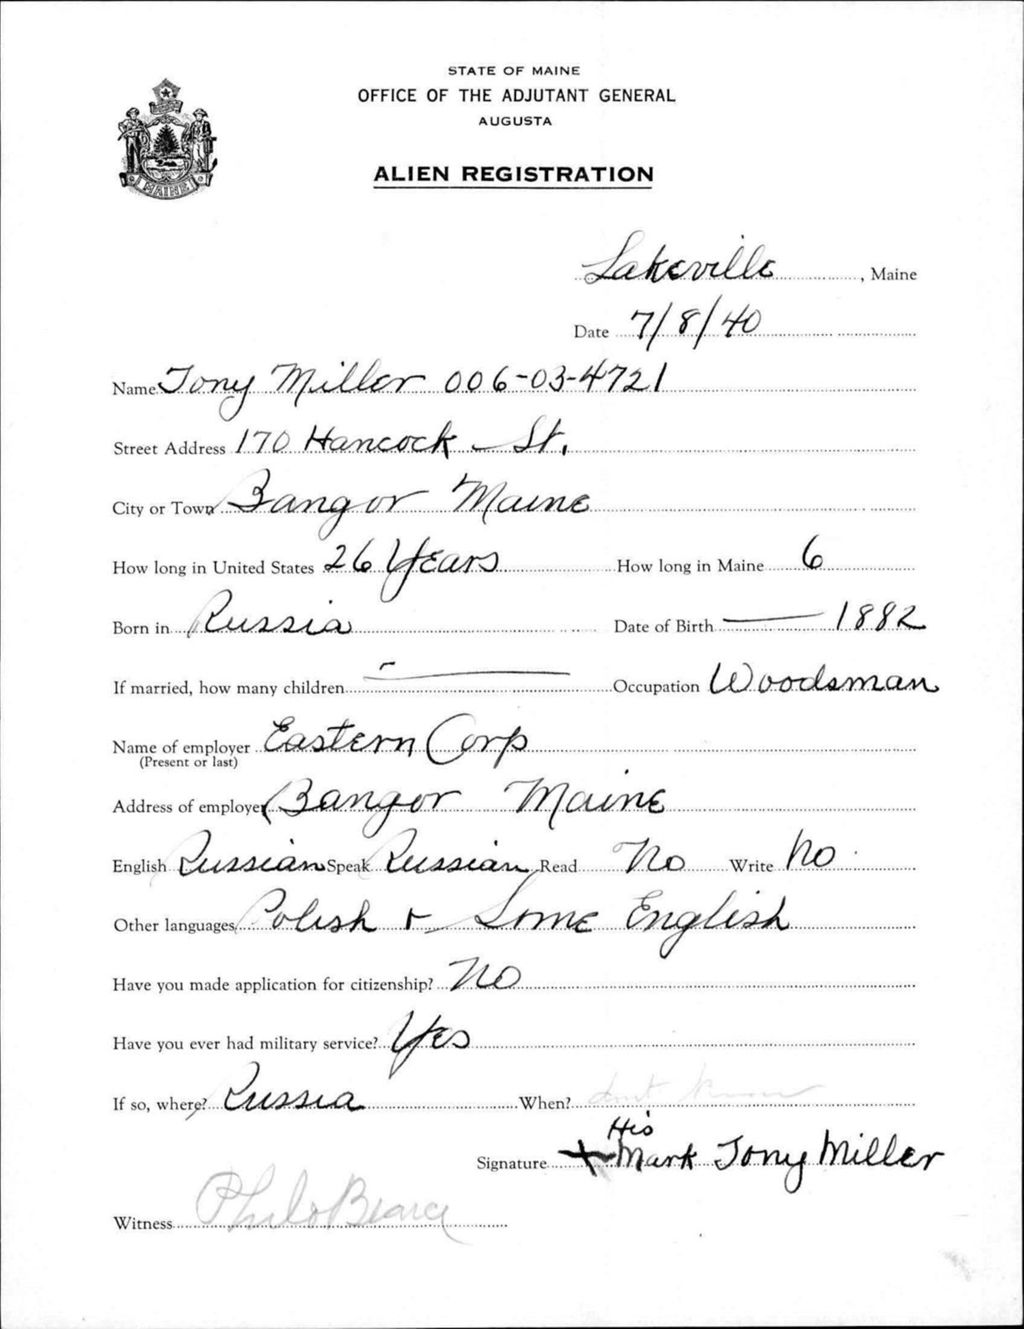 STATE OF MAINE
OFFICE OF THE ADJUTANT GENERAL
AUGUSTA
ALIEN REGISTRATION
MAINE
Lakeville, Maine
Date 7/8/40
Name Tony Miller 006-03-4721
Street Address 170 Hancock St.
City or Town Bangor Maine
How long in United States 26 Years How long in Maine 6
Born in Russia Date of Birth — 1882
If married, how many children — Occupation Woodsman
Name of employer Eastern Corp
(Present or last)
Address of employer Bangor Maine
English Russian Speak Russian Read No Write No
Other languages Polish & Some English
Have you made application for citizenship? No
Have you ever had military service? Yes
If so, where? Russia When? dont know
His
Signature X Mark Tony Miller
Witness Philo Bearce